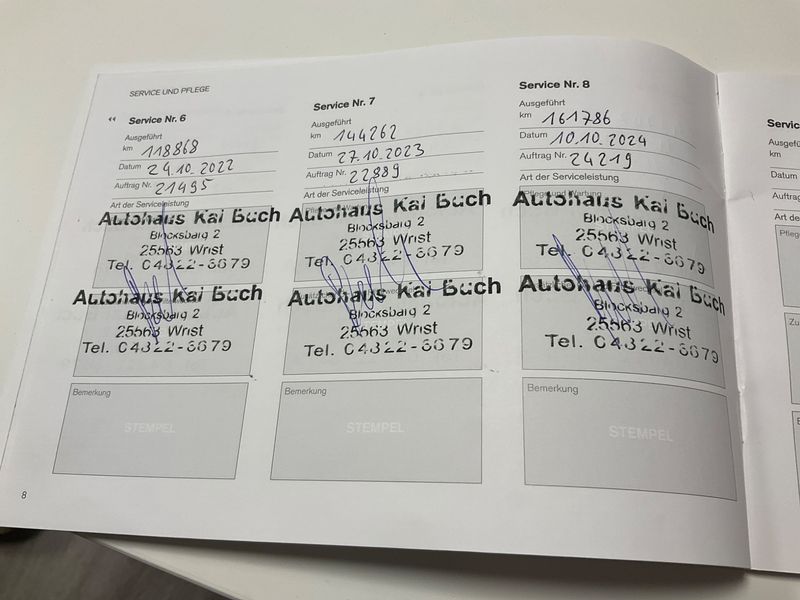 SERVICE UND PFLEGE
Service Nr. 6
Ausgeführt
km 118868
Datum 24.10.2022
Auftrag Nr. 21495
Art der Serviceleistung
Autohaus Kai Buch
Blocksbarg 2
25563 Wrist
Tel. 04822-6679
Autohaus Kai Buch
Blocksbarg 2
25563 Wrist
Tel. 04822-6679
Bemerkung
STEMPEL
Service Nr. 7
Ausgeführt
km 144262
Datum 27.10.2023
Auftrag Nr. 22889
Art der Serviceleistung
Autohaus Kai Buch
Blocksbarg 2
25563 Wrist
Tel. 04822-6679
Autohaus Kai Buch
Blocksbarg 2
25563 Wrist
Tel. 04822-6679
Bemerkung
STEMPEL
Service Nr. 8
Ausgeführt
km 161786
Datum 10.10.2024
Auftrag Nr. 24219
Art der Serviceleistung
Pflege und Wartung
Autohaus Kai Buch
Blocksbarg 2
25563 Wrist
Tel. 04822-6679
Autohaus Kai Buch
Blocksbarg 2
25563 Wrist
Tel. 04822-6679
Bemerkung
STEMPEL
8
Service
Ausgefü
km
Datum
Auftrag
Art der
Pflege
Zu